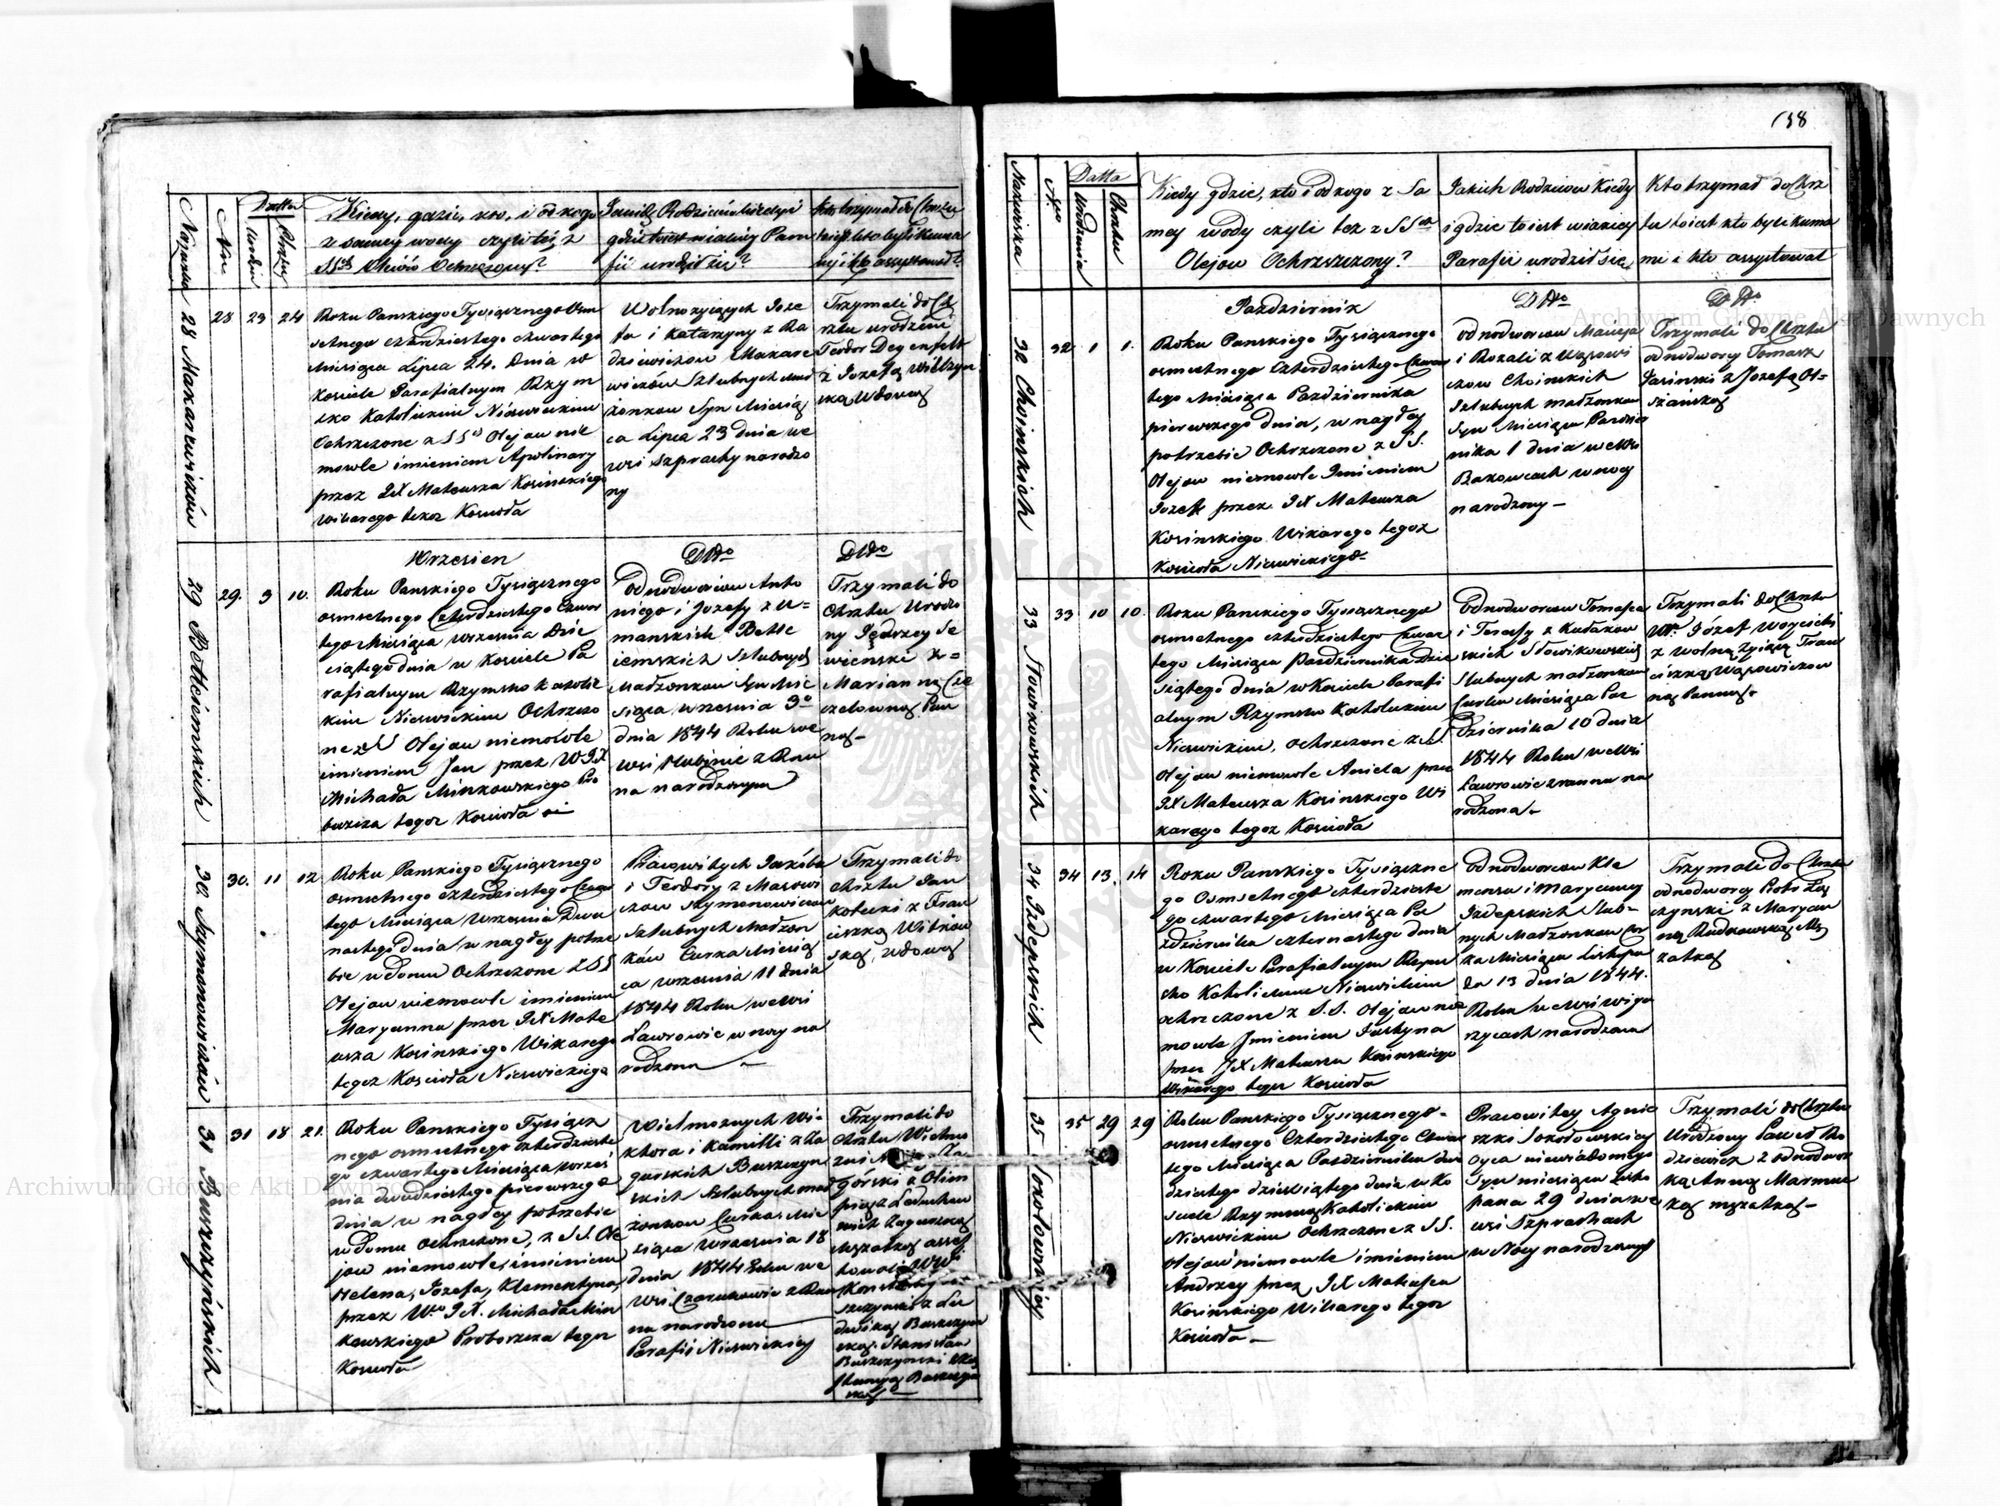 158
Nazwiska
Nro
Datta
Urodzin
Chrztu
Kiedy, gdzie, kto, i od kogo
z samey wody czyli też z
SSch Oleiów Ochrzczony?
Jakich Rodziców kiedy i
gdzie to iest w iakiey Para
fii urodził się?
Kto trzymał do Chrztu
to iest kto byli Kuma
mi i kto assystował?
28 Makarewiczów
28
23
24
Roku Panskiego Tysiącznego Osm
setnego czterdziestego czwartego
Miesiąca Lipca 24. Dnia w
Kosciele Parafialnym Rzym
sko Katolickim Niswickim
Ochrzczone z SSch Olejow nie
mowle imieniem Apolinary
przez JX Mateusza Kosinskiego
wikarego tegoz Koscioła
Wolnozyiących Joze
fa i Katarzyny z Ra
dziewiczow Makare
wiczów Szlubnych mał
żonkow Syn Miesią
ca Lipca 23 dnia we
wsi Szprachy narodzo
ny
Trzymali do Ch
rztu urodzeni
Teodor Degenfelt
z Jozefą Wilczyn
ską Wdową
29 Betleiemskich
Wrzesien
29.
3
10.
Roku Panskiego Tysiącznego
osmsetnego Czterdziestego Czwar
tego Miesiąca wrzesnia Dzie
siątego dnia w Kosciele Pa
rafialnym Rzymsko Katolic
kim Niswickim Ochrzczo
ne z SS Olejow niemowle
imieniem Jan przez WJX
Michała Minkowskiego Pro
boszcza tegoz Koscioła
Ditto
Odnodworcow Anto
niego i Jozefy z U=
manskich Betle
iemskich Szlubnych
Małzonkow Syn Mie
siąca wrzesnia 3o
dnia 1844 Roku we
wsi Hubinie z Ran
na narodzonym
Ditto
Trzymali do
Chrztu Urodzo
ny Jędrzey Se
wienski z=
Marianną Cze
czelowną Pan
ną-
30 Szymonowiczów
30.
11
12
Roku Panskiego Tysiącznego
osmsetnego czterdziestego Czwar
tego Miesiąca Wrzesnia Dwu
nastego Dnia w nagłey potrze
bie w domu Ochrzczone z SS
Olejow niemowle imieniem
Maryanna przez JX Mate
usza Kosinskiego Wikarego
tegoz Kosciola Niswickiego
Pracowitych Jakóba
i Teodory z Mazowi
czow Szymonowiczow
Szlubnych Małzon
ków Curka Miesią
ca wrzesnia 11 dnia
1844 Roku we Wsi
Ławrowie w nocy na
rodzona -
Trzymali do
chrztu Jan
Kotecki z Fran
ciszką Witkow
ską, wdową
31 Buszczyńskich
31
18
21
Roku Panskiego Tysiącz
nego osmsetnego czterdzieste
go czwartego Miesiąca wrześ
nia dwudziestego pierwszego
dnia w nagłey potrzebie
w domu ochrzczone, z SS. Ole
jow niemowle, imieniem
Helena, Jozefa, Klementyna,
przez Wo JX. Michała Min
kowskiego Proboszcza tegoz
Kosciola
Wielmoznych Wi=
ktora i Kamilli z Za
gurskich Buszczyn
skich Szlubnych mał
żonkow Curka Mie
siąca Wrzesnia 18
dnia 1844 Roku we
Wsi Czarukowie z Ran
na narodzona
Parafii Niswickiey
Trzymali do
Chrztu Wielmo
żni
górski z Olim
pią z Leduchow
skich Zagurską
Mężatką assys
towali WW
Konstanty Bu
szczynski z Lu
dwiką Buszczyn
ską. Stanisław
Buszczynski z Kon
stancyą Buszczyn
ską
Nazwiska
Nro
Datta
Urodzenia
Chrztu
Kiedy gdzie, kto i od kogo z Sa
mey wody czyli tez z SSch
Olejow Ochrzszczony?
Jakich Rodzicow Kiedy
i gdzie to iest w iakiey
Parafii urodził się
Kto trzymał do Chrz
tu to iest kto byli kuma
mi i kto assystował
32 Choinskich
Pazdziernik
32
1
1.
Roku Panskiego Tysiącznego
osmsetnego Czterdziestego Czwar
tego Miesiąca Pazdziernika
pierwszego dnia, w nagłey
potrzebie Ochrzczone z SS.
Olejow niemowle Imieniem
Jozef przez JX Mateusza
Kosinskiego Wikarego tegoz
Kosciola Niswickiego-
Ditto
odnodworcow Macieja
i Rozali z Wąsowi
czow Choinskich
Szlubnych małzonkow
Syn Miesiąca Pazdzier
nika 1 dnia we Wsi
Rakowcach w nocy
narodzony -
Ditto
Trzymali do Chrztu
odnodworcy Tomasz
Jasinski z Jozefą Ol=
szańską
33 Słowikowskich
33
10
10.
Roku Panskiego Tysiącznego
osmsetnego czterdziestego Czwar
tego Miesiąca Pazdziernika Dzie
siątego dnia w Kosciele Parafi
alnym Rzymsko Katolickim
Niswickim, ochrzczone z SS.
Olejow niemowle Aniela przez
JX Mateusza Kosinskiego Wi
karego tegoz Kosciola
Odnodworcow Tomasza
i Teresy z Kułakow
skich Słowikowskich
Slubnych małzonkow
Curka Miesiąca Paz
dziernika 10 dnia
1844 Roku we Wsi
Ławrowie z ranna na
rodzona -
Trzymali do Chrztu
Wr. Józef Woyciechi
z wolną żyiącą Fran
ciszką Wąsowiczow
ną Panną-
34 Izdepskich
34
13.
14
Roku Panskiego Tysiączne
go Osmsetnego czterdzieste
go czwartego Miesiąca Pa
zdziernika czternastego dnia
w Kosciele Parafialnym Rzym
sko Katolickim Niswickim
ochrzczone z S.S. Olejow nie
mowle Imieniem Justyna
przez JX Mateusza Kosinskiego
Wikarego tegoz Kosciola
Odnodworcow Kle
mensa i Maryanny
Izdepskich Slub-
nych Małzonkow Cor
ka Miesiąca Listopa
da 13 dnia 1844.
Roku we Wsi
narodzona
Trzymali do Chrztu
odnodworcy Piotr
czynski z Maryan
ną Rudkowską Mę
zatką
35 Sokołowskiey
35
29
29
Roku Panskiego Tysiącznego-
osmsetnego Czterdziestego Czwar
tego Miesiąca Pazdziernika dwu
dziestego dziewiątego dnia w Ko
sciele Rzymsko Katolickim
Niswickim Ochrzczone z SS.
Olejow niemowle imieniem
Andrzey przez JX Mateusza
Kosinskiego Wikarego tegoz
Kosciola -
Pracowitey Agnie
szki Sokołowskiey
Oyca niewiadomego
Syn miesiąca
pada 29 dnia we
wsi Szprachach
w Nocy narodzony
Trzymali do Chrztu
Urodzony Paweł Ro
dziewicz z odnodwor
ką Anną
ką mężatką-
Archiwum Główne Akt Dawnych
Archiwum Główne Akt Dawnych